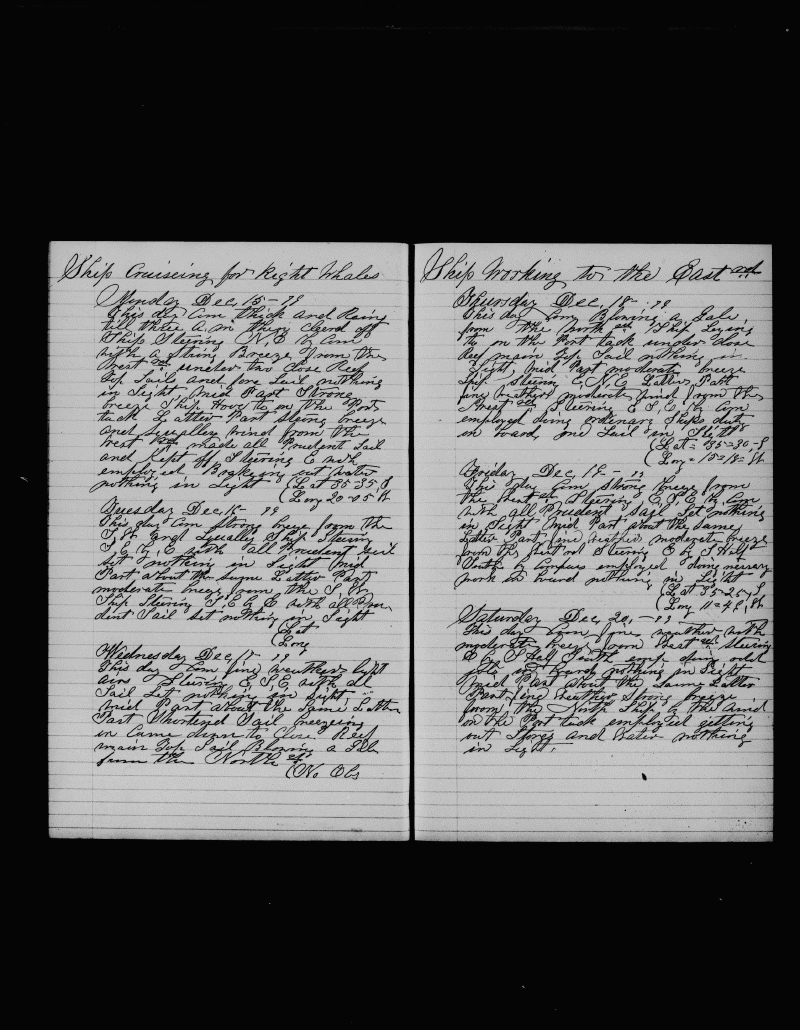 Ship Cruiseing for Right Whales
Monday Dec, 15 - 79
This day Com thick and Rainy
till three a.m then cleerd off
Ship Steering N, E by Com
with a strong Breeze from the
West under two close Reef
Top Sails and fore Sail nothing
in Sight, Mid Part Strong
breeze Ship Hove to on the Port
tack Latter Part Strong breeze
and Squalley wind from the
West made all Prudent Sail
and Kept off Steering E with
employed Braking out water
nothing in Sight (Lat 35-35 S
(Long 20-05 W
Tuesday Dec, 16 - 79
This day Com Strong breeze from the
S W and Squally Ship Steering
S, E by E with all Prudent Sail
set nothing in Sight Mid
Part about the same Latter Part
moderate breeze from the S, W,
Ship Steering S, E by E with all Pru
dent Sail Set nothing in Sight
(Lat
(Long
Wednesday Dec, 17 - 79
This day Com fine weather light
airs Steering E S, E with all
Sail Set nothing in Sight
Mid Part about the Same Latter
Part Shortened Sail breezeing
in Came down to Close Reef
main Top Sail Blowing a Gale
from the North
(No Obs
Ship Working to the East ard
Thursday Dec, 18 - 79
This day Com Blowing a Gale
from the North Ship Laying
to on the Port tack under close
Reef main Top Sail nothing in
Sight, Mid Part moderate breeze
Ship Steern E, N, E Latter Part
fine weather moderate wind from the
West Steering E S, E by Com
employed doing ordenary Ships duty
on board, one Sail in Sight
(Lat = 35=30-S
(Long = 15=18= W
Friday Dec, 19 - 79
This day Com Strong breeze from
the West Steering E, S, E by Com
with all Prudent Sail Set nothing
in Sight Mid Part about the Same
Latter Part fine weather moderate breeze
from the Steering E by S Half
South by Compass employed doing nessary
work on board nothing in Sight
(Lat 35=25-S
(Long 11=48, W
Saturday Dec, 20, - 79
This day Com fine weather with
moderate breeze from West steering
E by S Half South emp, doing odd
jobs on board, nothing in Sight
Mid Part about the Same Latter
Part fine weather Strong breeze
from the North Ship by the wind
on the Port tack employed getting
out Stores and Water nothing
in Sight.